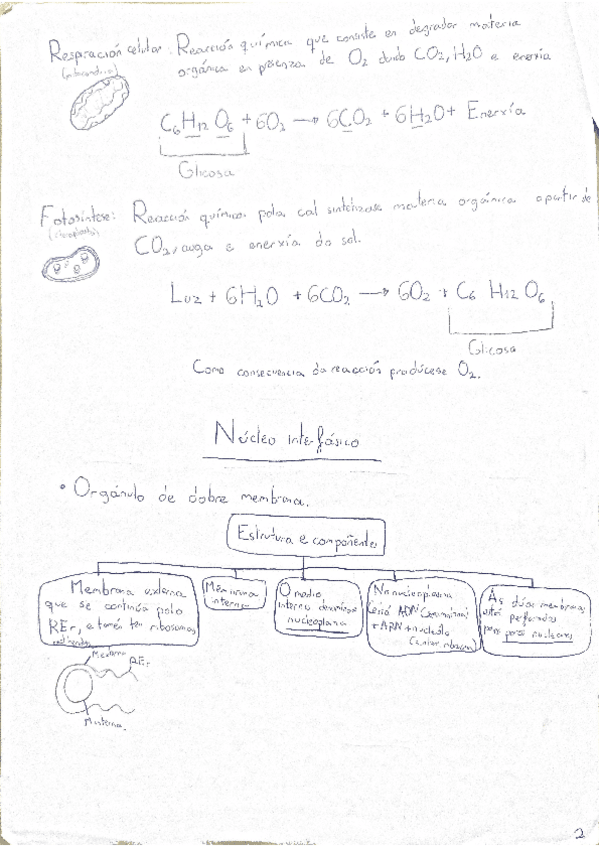 Respiración celular: Reacción química que consiste en degradar materia
(mitocondria)
orgánica en presenza de O2 dando CO2, H2O e enerxía
C6 H12 O6 + 6O2 → 6CO2 + 6H2O + Enerxía
Glicosa
Fotosíntese: Reacción química pola cal sintetízase materia orgánica a partir de
(cloroplasto)
CO2, auga e enerxía do sol.
Luz + 6H2O + 6CO2 → 6O2 + C6 H12 O6
Glicosa
Como consecuencia da reacción prodúcese O2.
Núcleo interfásico
• Orgánulo de dobre membrana.
Estrutura e compoñentes
Membrana externa
que se continúa polo
REr, e tamén ten ribosomas
Membrana
interna
O medio
interno denomínase
nucleoplasma
No nucleoplasma
está ADN
+ ARN + nucléolo
As dúas membranas
están perforadas
por poros nucleares
M. externa
REr
M. interna
2